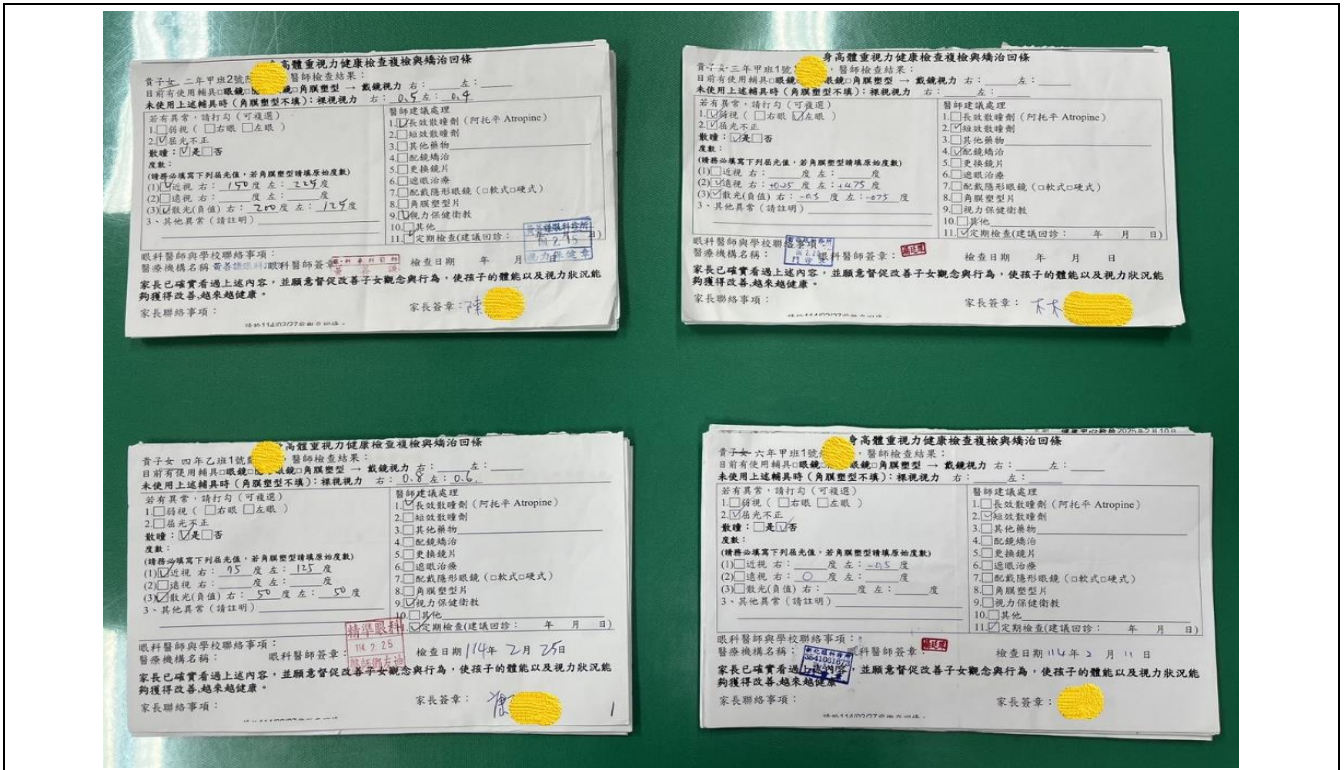 身高體重視力健康檢查複檢與矯治回條
貴子女 二年甲班2號 醫師檢查結果：
目前有使用輔具□眼鏡 鏡□角膜塑型 → 戴鏡視力 右： 左：
未使用上述輔具時（角膜塑型不填）：裸視視力 右：0.5 左：0.4
若有異常，請打勾（可複選）
1.□弱視（ □右眼 □左眼 ）
2.☑屈光不正
散瞳：☑是□否
度數：
(請務必填寫下列屈光值，若角膜塑型請填原始度數)
(1)☑近視 右：150度 左：225度
(2)□遠視 右： 度 左： 度
(3)☑散光(負值) 右：200度 左：125度
3、其他異常（請註明）
醫師建議處理
1.☑長效散瞳劑（阿托平 Atropine）
2.□短效散瞳劑
3.□其他藥物
4.□配鏡矯治
5.□更換鏡片
6.□遮眼治療
7.□配戴隱形眼鏡（□軟式□硬式）
8.□角膜塑型片
9.☑視力保健衛教
10.□其他
11.☑定期檢查(建議回診： 日)
眼科醫師與學校聯絡事項：
醫療機構名稱 眼科醫師簽章 檢查日期 年 月
家長已確實看過上述內容，並願意督促改善子女觀念與行為，使孩子的體能以及視力狀況能
夠獲得改善,越來越健康。
家長聯絡事項： 家長簽章：陳
高體重視力健康檢查複檢與矯治回條
貴子女 三年甲班1號 醫師檢查結果：
目前有使用輔具□眼鏡 鏡□角膜塑型 → 戴鏡視力 右： 左：
未使用上述輔具時（角膜塑型不填）：裸視視力 右： 左：
若有異常，請打勾（可複選）
1.☑弱視（ □右眼 ☑左眼 ）
2.☑屈光不正
散瞳：☑是□否
度數：
(請務必填寫下列屈光值，若角膜塑型請填原始度數)
(1)□近視 右： 度 左： 度
(2)☑遠視 右：+0.25 度 左：+4.75 度
(3)☑散光(負值) 右：-0.5 度 左：-0.75 度
3、其他異常（請註明）
醫師建議處理
1.□長效散瞳劑（阿托平 Atropine）
2.☑短效散瞳劑
3.□其他藥物
4.☑配鏡矯治
5.□更換鏡片
6.□遮眼治療
7.□配戴隱形眼鏡（□軟式□硬式）
8.□角膜塑型片
9.□視力保健衛教
10.□其他
11.☑定期檢查(建議回診： 年 月 日)
眼科醫師與學校聯絡事項：
醫療機構名稱： 眼科醫師簽章： 檢查日期 年 月 日
家長已確實看過上述內容，並願意督促改善子女觀念與行為，使孩子的體能以及視力狀況能
夠獲得改善,越來越健康。
家長聯絡事項： 家長簽章：林
高體重視力健康檢查複檢與矯治回條
貴子女 四年乙班1號 醫師檢查結果：
目前有使用輔具□眼鏡 鏡□角膜塑型 → 戴鏡視力 右： 左：
未使用上述輔具時（角膜塑型不填）：裸視視力 右：0.8 左：0.6
若有異常，請打勾（可複選）
1.□弱視（ □右眼 □左眼 ）
2.□屈光不正
散瞳：☑是□否
度數：
(請務必填寫下列屈光值，若角膜塑型請填原始度數)
(1)☑近視 右：75 度 左：125 度
(2)□遠視 右： 度 左： 度
(3)☑散光(負值) 右：50 度 左：50 度
3、其他異常（請註明）
醫師建議處理
1.☑長效散瞳劑（阿托平 Atropine）
2.□短效散瞳劑
3.□其他藥物
4.□配鏡矯治
5.□更換鏡片
6.□遮眼治療
7.□配戴隱形眼鏡（□軟式□硬式）
8.□角膜塑型片
9.☑視力保健衛教
10.□其他
11.☑定期檢查(建議回診： 年 月 日)
精準眼科
114.2.25
眼科醫師與學校聯絡事項：
醫療機構名稱： 眼科醫師簽章： 檢查日期 114年 2月 25日
家長已確實看過上述內容，並願意督促改善子女觀念與行為，使孩子的體能以及視力狀況能
夠獲得改善,越來越健康。
家長聯絡事項： 家長簽章：
1
2025年2月10日
身高體重視力健康檢查複檢與矯治回條
貴子女 六年甲班1號 醫師檢查結果：
目前有使用輔具□眼鏡 鏡□角膜塑型 → 戴鏡視力 右： 左：
未使用上述輔具時（角膜塑型不填）：裸視視力 右： 左：
若有異常，請打勾（可複選）
1.□弱視（ □右眼 □左眼 ）
2.☑屈光不正
散瞳：□是☑否
度數：
(請務必填寫下列屈光值，若角膜塑型請填原始度數)
(1)□近視 右： 度 左：-0.5 度
(2)□遠視 右：0 度 左： 度
(3)□散光(負值) 右： 度 左： 度
3、其他異常（請註明）
醫師建議處理
1.□長效散瞳劑（阿托平 Atropine）
2.☑短效散瞳劑
3.□其他藥物
4.□配鏡矯治
5.□更換鏡片
6.□遮眼治療
7.□配戴隱形眼鏡（□軟式□硬式）
8.□角膜塑型片
9.□視力保健衛教
10.□其他
11.☑定期檢查(建議回診： 年 月 日)
眼科醫師與學校聯絡事項：
醫療機構名稱： 眼科醫師簽章： 檢查日期 114年 2 月 11 日
家長已確實看過上述內容，並願意督促改善子女觀念與行為，使孩子的體能以及視力狀況能
夠獲得改善,越來越健康
家長聯絡事項： 家長簽章：